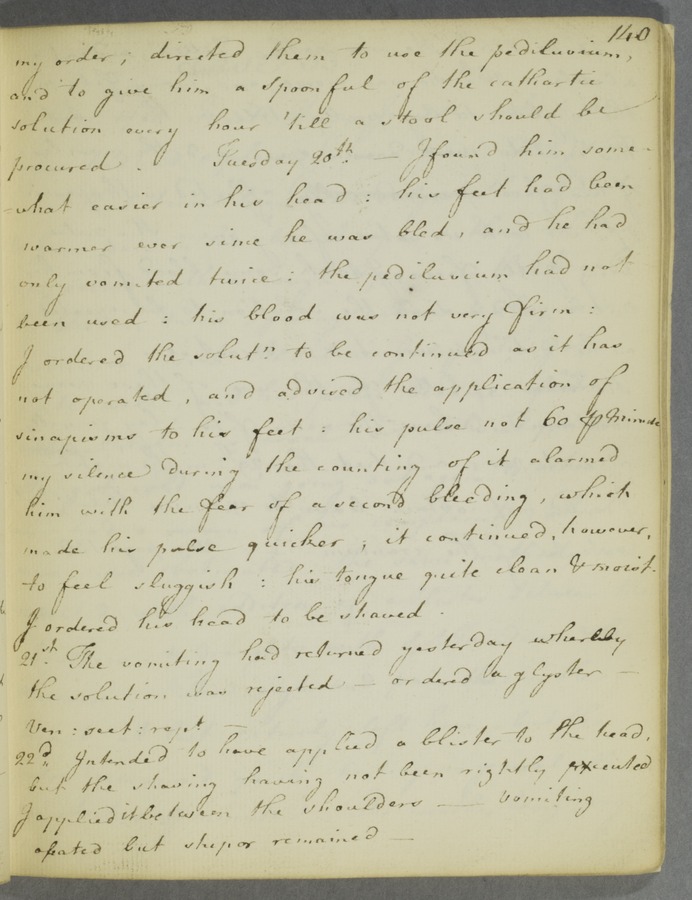 140
my order; directed them to use the pediluvium,
and to give him a spoonful of the cathartic
solution every hour 'till a stool should be
procured. Tuesday 20th. — I found him some-
-what easier in his head: his feet had been
warmer ever since he was bled, and he had
only vomited twice: the pediluvium had not
been used: his blood was not very firm:
I ordered the solutn. to be continued as it has
not operated, and advised the application of
sinapisms to his feet: his pulse not 60 ⅌ Minute
my silence during the counting of it alarmed
him with the fear of a second bleeding, which
made his pulse quicker; it continued, however,
to feel sluggish: his tongue quite clean & moist.
I ordered his head to be shaved.
21st. The vomiting had returned yesterday whereby
the solution was rejected — ordered a glyster —
Ven: sect: rept —
22d. Intended to have applied a blister to the head,
but the shaving having not been rightly executed
I applied it between the shoulders — vomiting
abated but stupor remained —